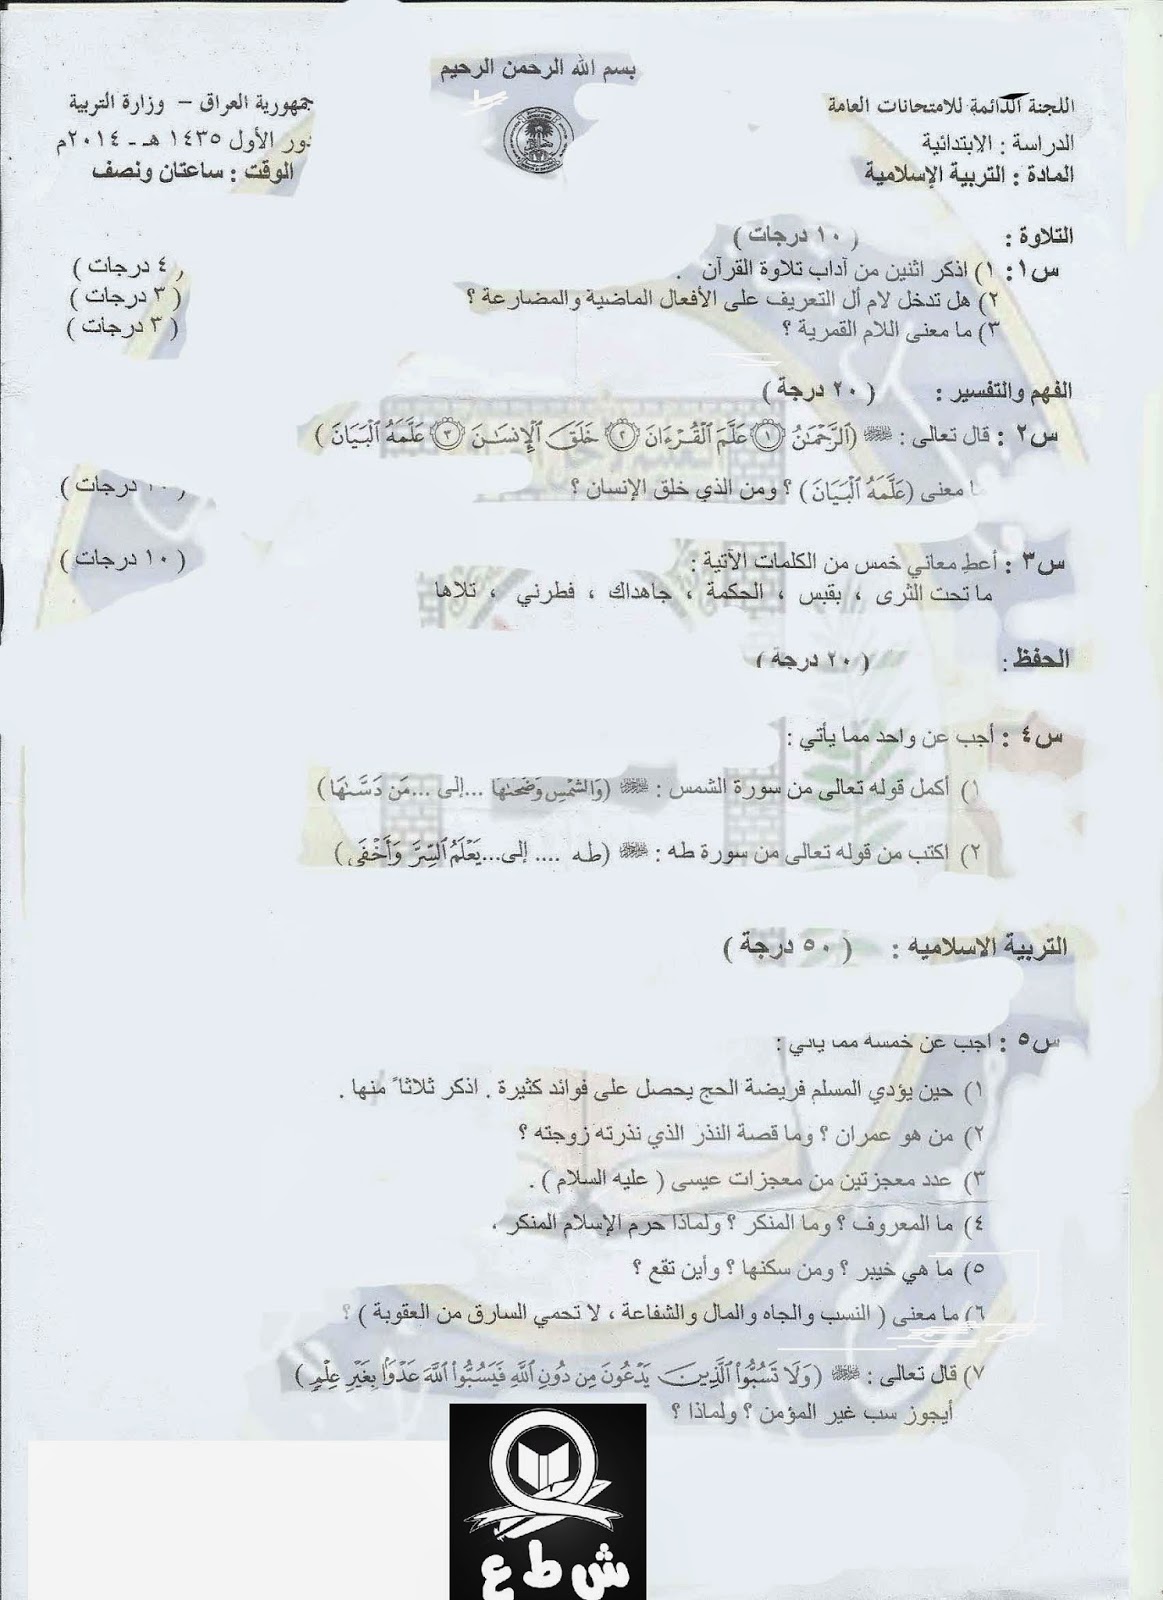 بسم الله الرحمن الرحيم
اللجنة الدائمة للامتحانات العامة
الدراسة : الابتدائية
المادة : التربية الإسلامية
جمهورية العراق – وزارة التربية
دور الأول ١٤٣٥ هـ - ٢٠١٤م
الوقت : ساعتان ونصف
التلاوة : ( ١٠ درجات )
س١: ١) اذكر اثنين من آداب تلاوة القرآن . ( ٤ درجات )
٢) هل تدخل لام أل التعريف على الأفعال الماضية والمضارعة ؟ ( ٣ درجات )
٣) ما معنى اللام القمرية ؟ ( ٣ درجات )
الفهم والتفسير : ( ٢٠ درجة )
س٢ : قال تعالى : ﷽ (ٱلرَّحْمَٰنُ ١ عَلَّمَ ٱلْقُرْءَانَ ٢ خَلَقَ ٱلْإِنسَٰنَ ٣ عَلَّمَهُ ٱلْبَيَانَ )
ما معنى (عَلَّمَهُ ٱلْبَيَانَ ) ؟ ومن الذي خلق الإنسان ؟ ( ١٠ درجات )
س٣ : أعطِ معاني خمس من الكلمات الآتية : ( ١٠ درجات )
ما تحت الثرى ، بقبس ، الحكمة ، جاهداك ، فطرني ، تلاها
الحفظ : ( ٢٠ درجة )
س٤ : أجب عن واحد مما يأتي :
١) أكمل قوله تعالى من سورة الشمس : ﷽ (وَٱلشَّمْسِ وَضُحَىٰهَا ...إلى ...مَن دَسَّىٰهَا )
٢) اكتب من قوله تعالى من سورة طه : ﷽ (طه .... إلى...يَعْلَمُ ٱلسِّرَّ وَأَخْفَى )
التربية الاسلامية : ( ٥٠ درجة )
س٥ : أجب عن خمسة مما يأتي :
١) حين يؤدي المسلم فريضة الحج يحصل على فوائد كثيرة . اذكر ثلاثاً منها .
٢) من هو عمران ؟ وما قصة النذر الذي نذرته زوجته ؟
٣) عدد معجزتين من معجزات عيسى ( عليه السلام ) .
٤) ما المعروف ؟ وما المنكر ؟ ولماذا حرم الإسلام المنكر .
٥) ما هي خيبر ؟ ومن سكنها ؟ وأين تقع ؟
٦) ما معنى ( النسب والجاه والمال والشفاعة ، لا تحمي السارق من العقوبة ) ؟
٧) قال تعالى : ﷽ (وَلَا تَسُبُّوا۟ ٱلَّذِينَ يَدْعُونَ مِن دُونِ ٱللَّهِ فَيَسُبُّوا۟ ٱللَّهَ عَدْوًۢا بِغَيْرِ عِلْمٍ )
أيجوز سب غير المؤمن ؟ ولماذا ؟
ش ط ع